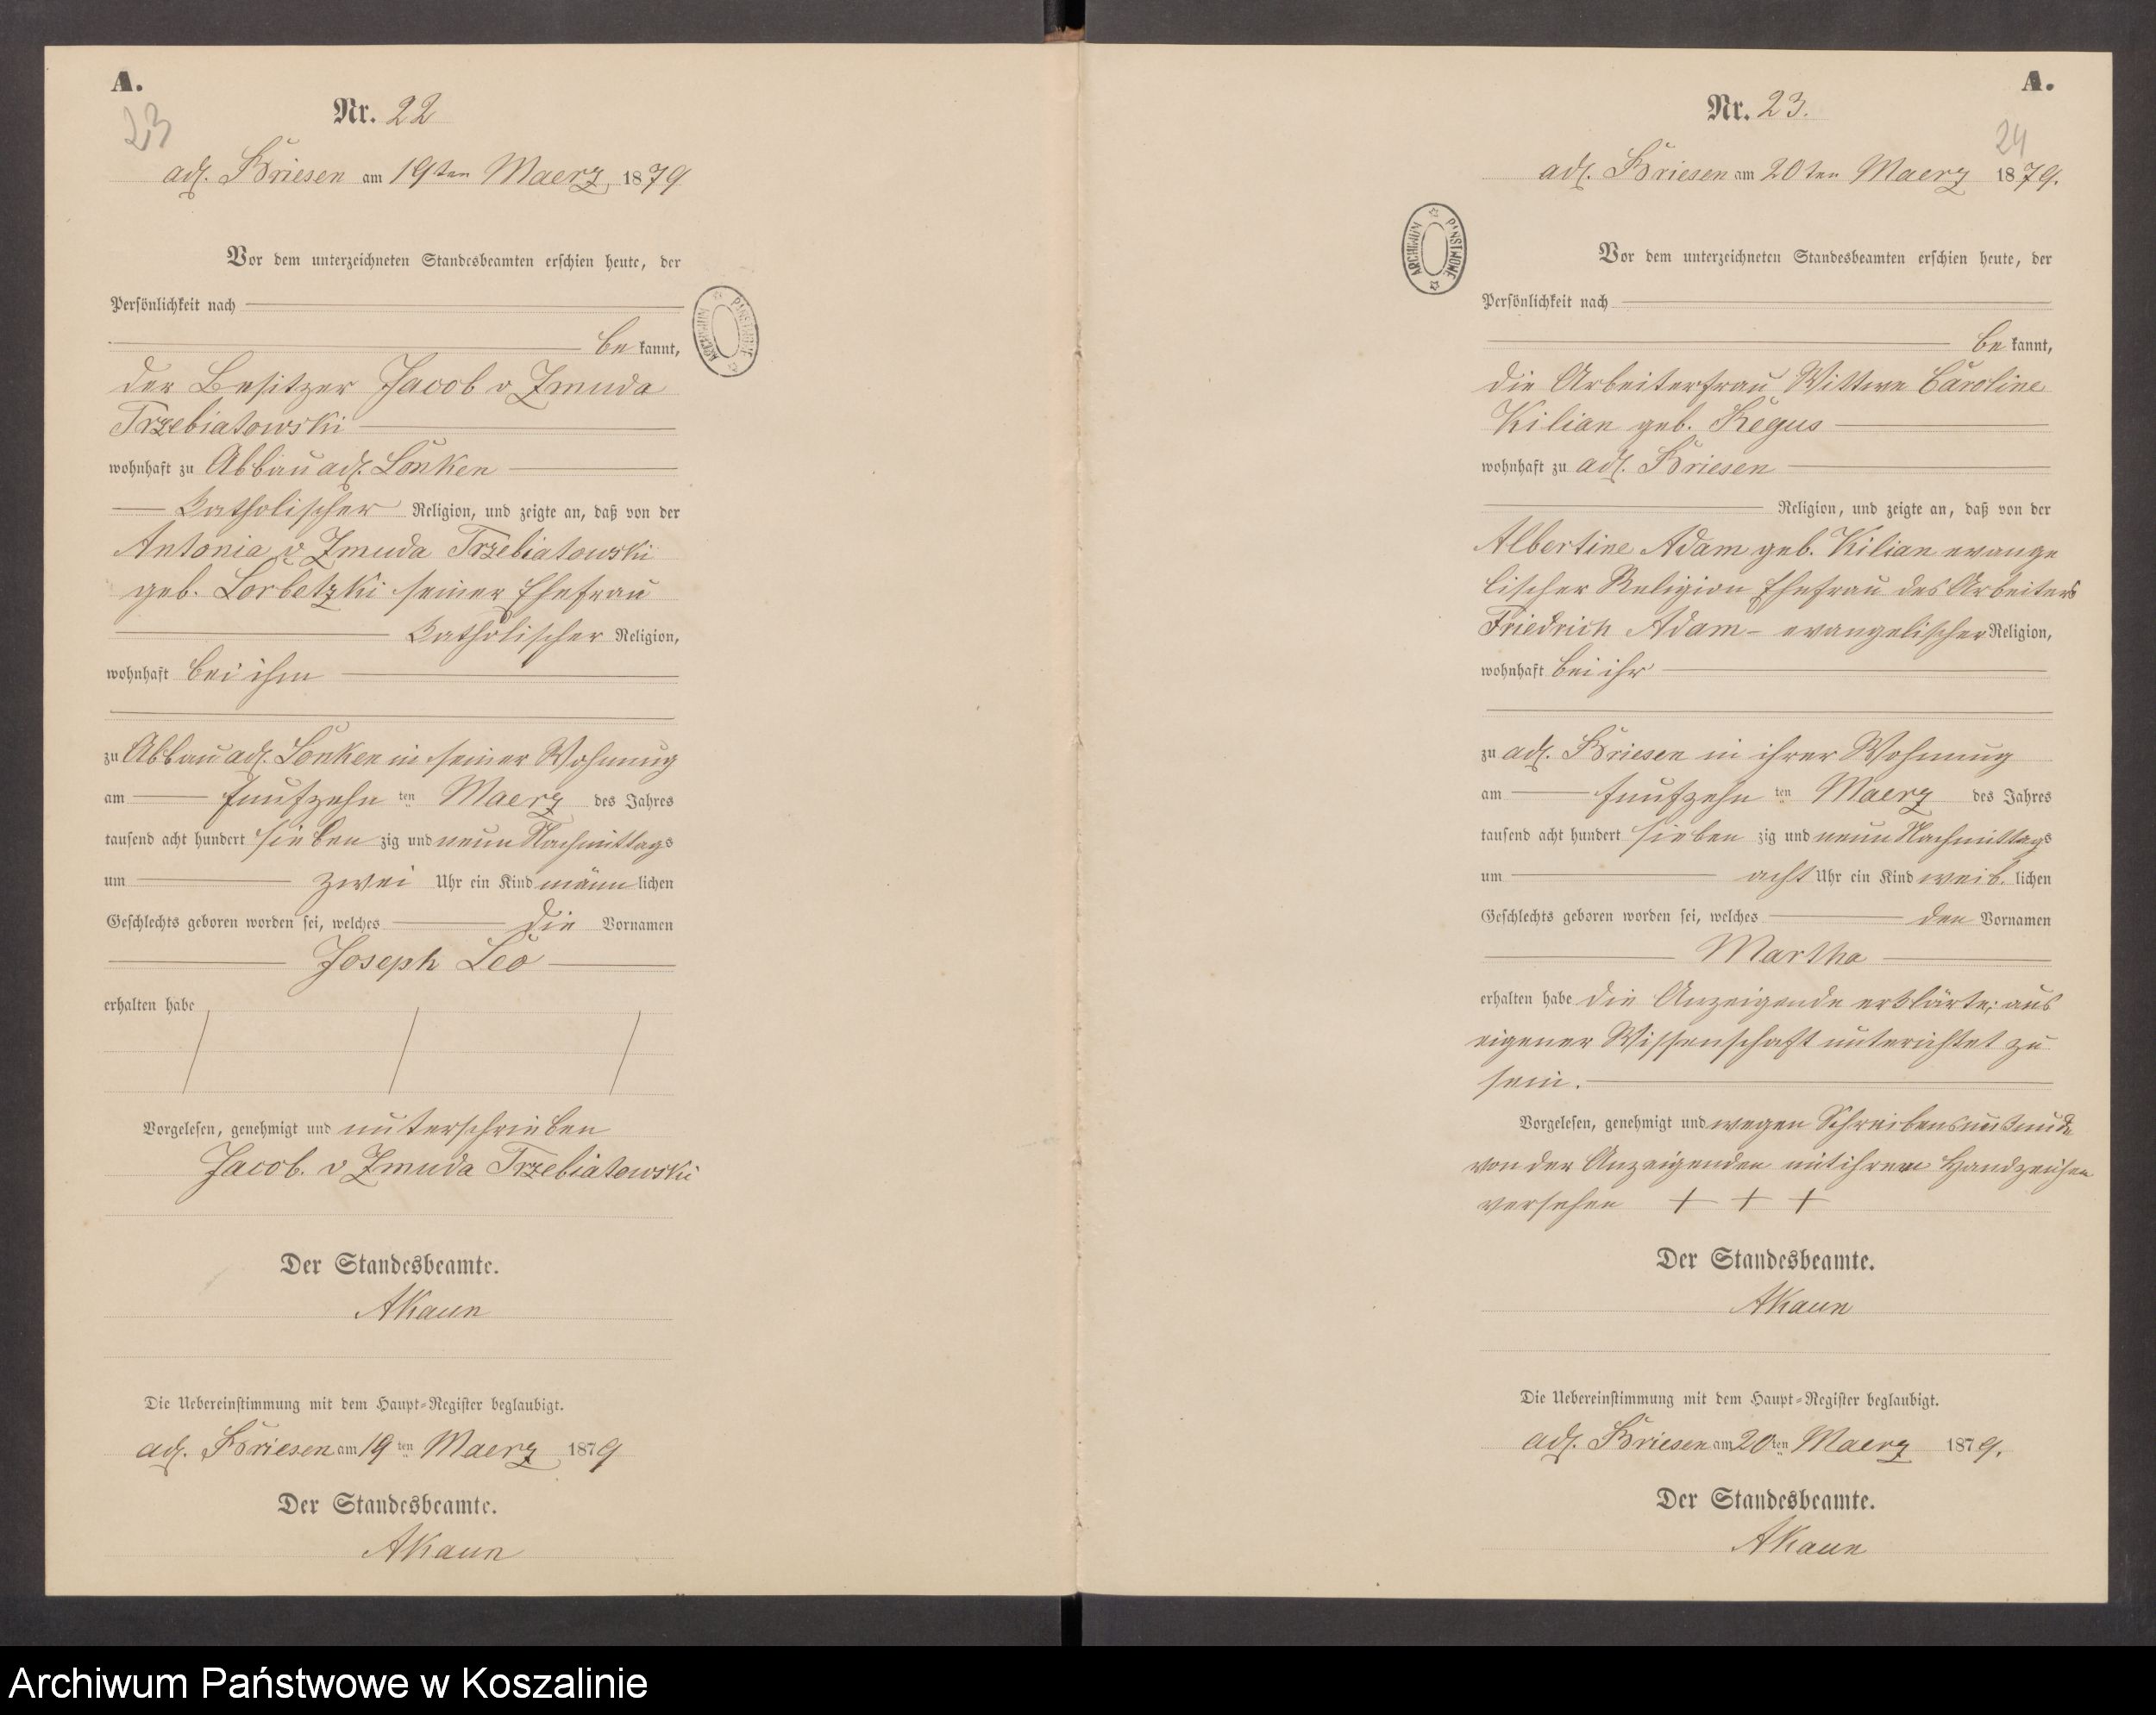 A.
23
Nr. 22
adl. Briesen am 19ten Maerz 1879
Vor dem unterzeichneten Standesbeamten erschien heute, der
Persönlichkeit nach
be kannt,
der Besitzer Jacob v Zmuda
Trzebiatowski
wohnhaft zu Abbau adl. Lonken
Katholischer Religion, und zeigte an, daß von der
Antonia v Zmuda Trzebiatowski
geb. Lorbetzki seiner Ehefrau
Katholischer Religion,
wohnhaft bei ihm
zu Abbau adl. Lonken in seiner Wohnung
am funfzehn ten Maerz des Jahres
tausend acht hundert sieben zig und neun Nachmittags
um zwei Uhr ein Kind männ lichen
Geschlechts geboren worden sei, welches die Vornamen
Joseph Leo
erhalten habe
Vorgelesen, genehmigt und unterschrieben
Jacob. v Zmuda Trzebiatowski
Der Standesbeamte.
AKaun
Die Uebereinstimmung mit dem Haupt-Register beglaubigt.
adl. Briesen am 19 ten Maerz 1879
Der Standesbeamte.
AKaun
ARCHIWUM PAŃSTWOWE
A.
24
Nr. 23.
adl. Briesen am 20ten Maerz 1879.
ARCHIWUM PAŃSTWOWE
Vor dem unterzeichneten Standesbeamten erschien heute, der
Persönlichkeit nach
be kannt,
die Arbeiterfrau Wittwe Caroline
Kilian geb. Regus
wohnhaft zu adl. Briesen
Religion, und zeigte an, daß von der
Albertine Adam geb. Kilian evange
lischer Religion Ehefrau des Arbeiters
Friedrich Adam - evangelischer Religion,
wohnhaft bei ihr
zu adl. Briesen in ihrer Wohnung
am funfzehn ten Maerz des Jahres
tausend acht hundert sieben zig und neun Nachmittags
um acht Uhr ein Kind weib. lichen
Geschlechts geboren worden sei, welches den Vornamen
Martha
erhalten habe die Anzeigende erklärte; aus
eigener Wissenschaft unterichtet zu
sein.
Vorgelesen, genehmigt und wegen Schreibensunkunde
von der Anzeigenden mit ihrem Handzeichen
versehen + + +
Der Standesbeamte.
AKaun
Die Uebereinstimmung mit dem Haupt-Register beglaubigt.
adl. Briesen am 20 ten Maerz 1879.
Der Standesbeamte.
AKaun
Archiwum Państwowe w Koszalinie